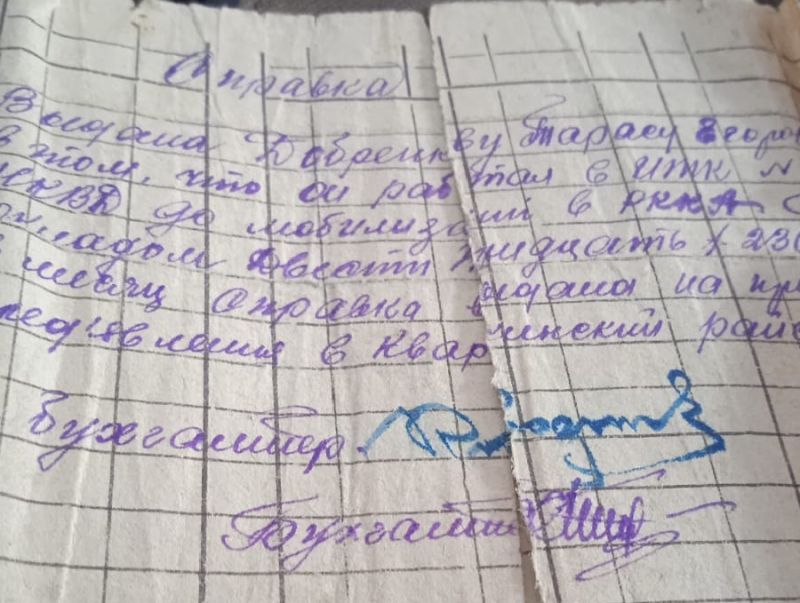 Справка
Выдана Добренкву Тарасу Егоров
в том, что он работал в ИТК N
НКВД до мобилизаций в РККА С
окладом Двести тридцать 230
в месяц Справка выдана на пр
ред'явления в Квар инский рай
Бухгалтер
Бухгалт